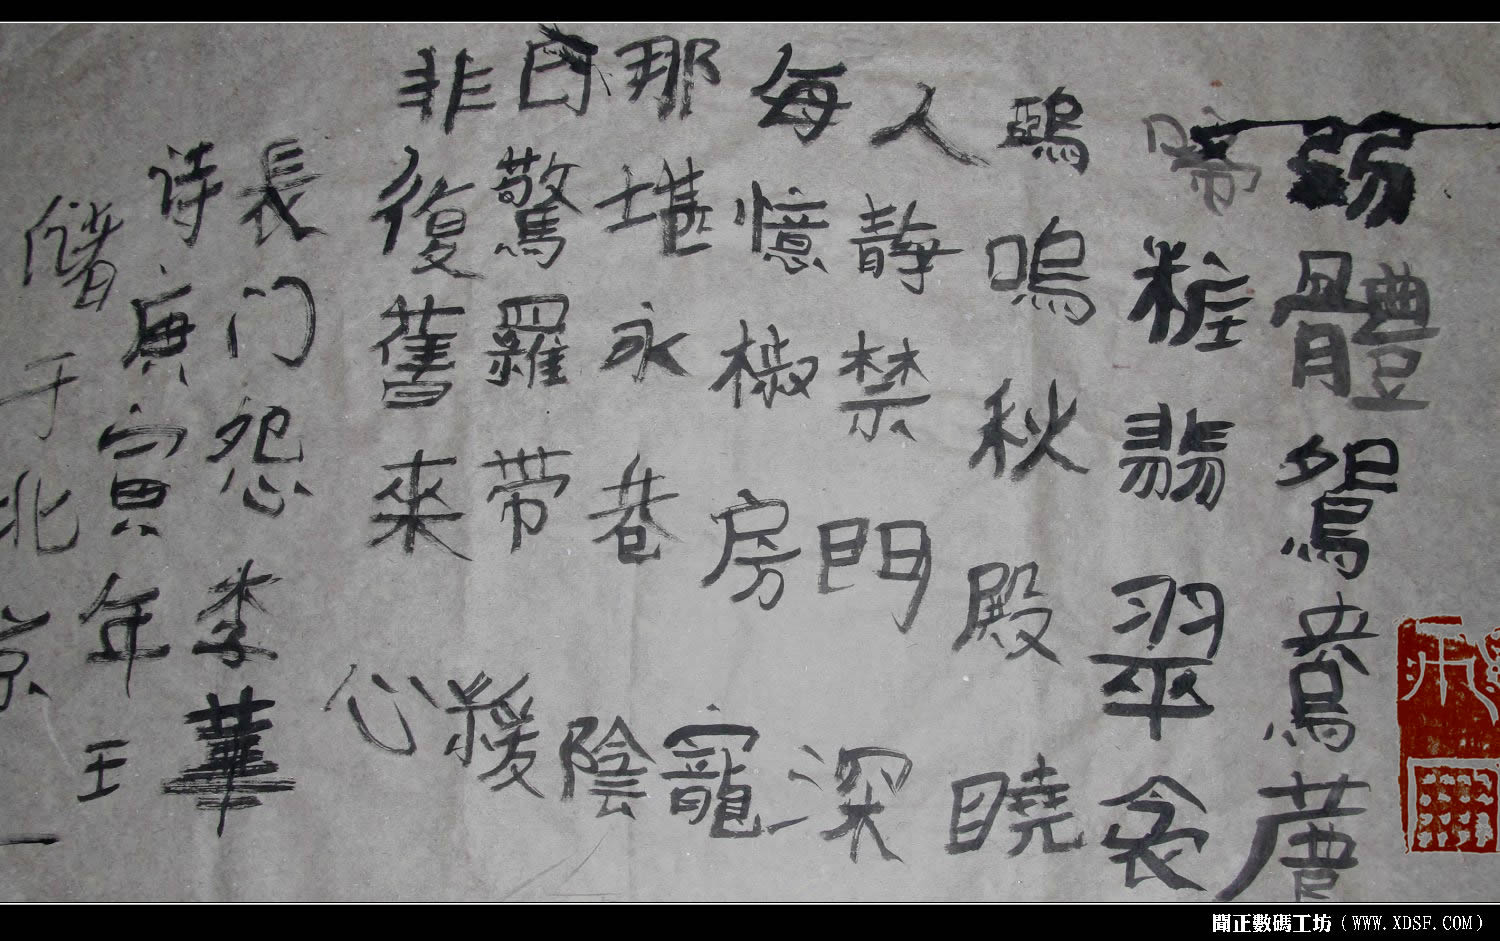 弱體鴛鴦薦
啼粧翡翠衾
鵶鳴秋殿曉
人靜禁門深
每憶椒房寵
那堪永巷陰
日驚羅带緩
非復舊來心
長门怨李華
诗庚寅年王
储于北京一
聞正數碼工坊（WWW.XDSF.COM）